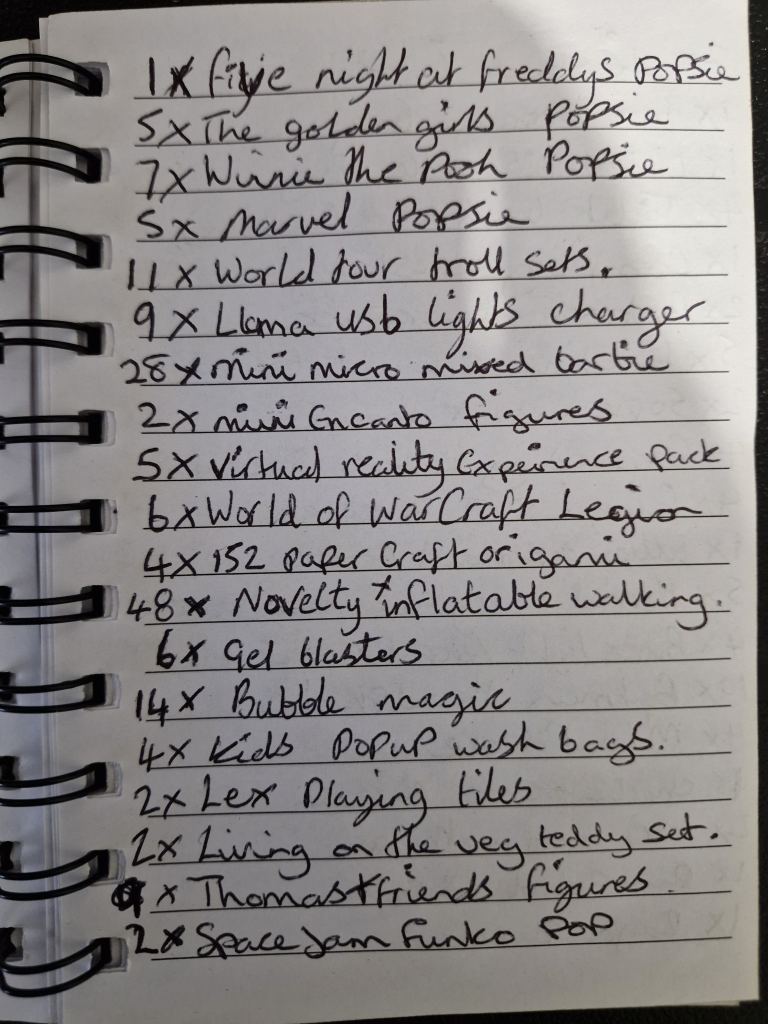 1x five night at freddys Popsie
5x The golden girls popsie
7x Winnie the Pooh Popsie
5x Marvel Popsie
11x World tour troll sets.
9x Llama usb lights charger
28x mini micro mixed barbie
2x mini Encanto figures
5x virtual reality Experience pack
6x World of WarCraft Legion
4x 152 paper Craft origami
48x Novelty inflatable walking.
6x gel blasters
14x Bubble magic
4x kids PopuP wash bags.
2x Lex Playing tiles
2x Living on the veg teddy set.
9x Thomas+friends figures.
2x Space Jam funko POP